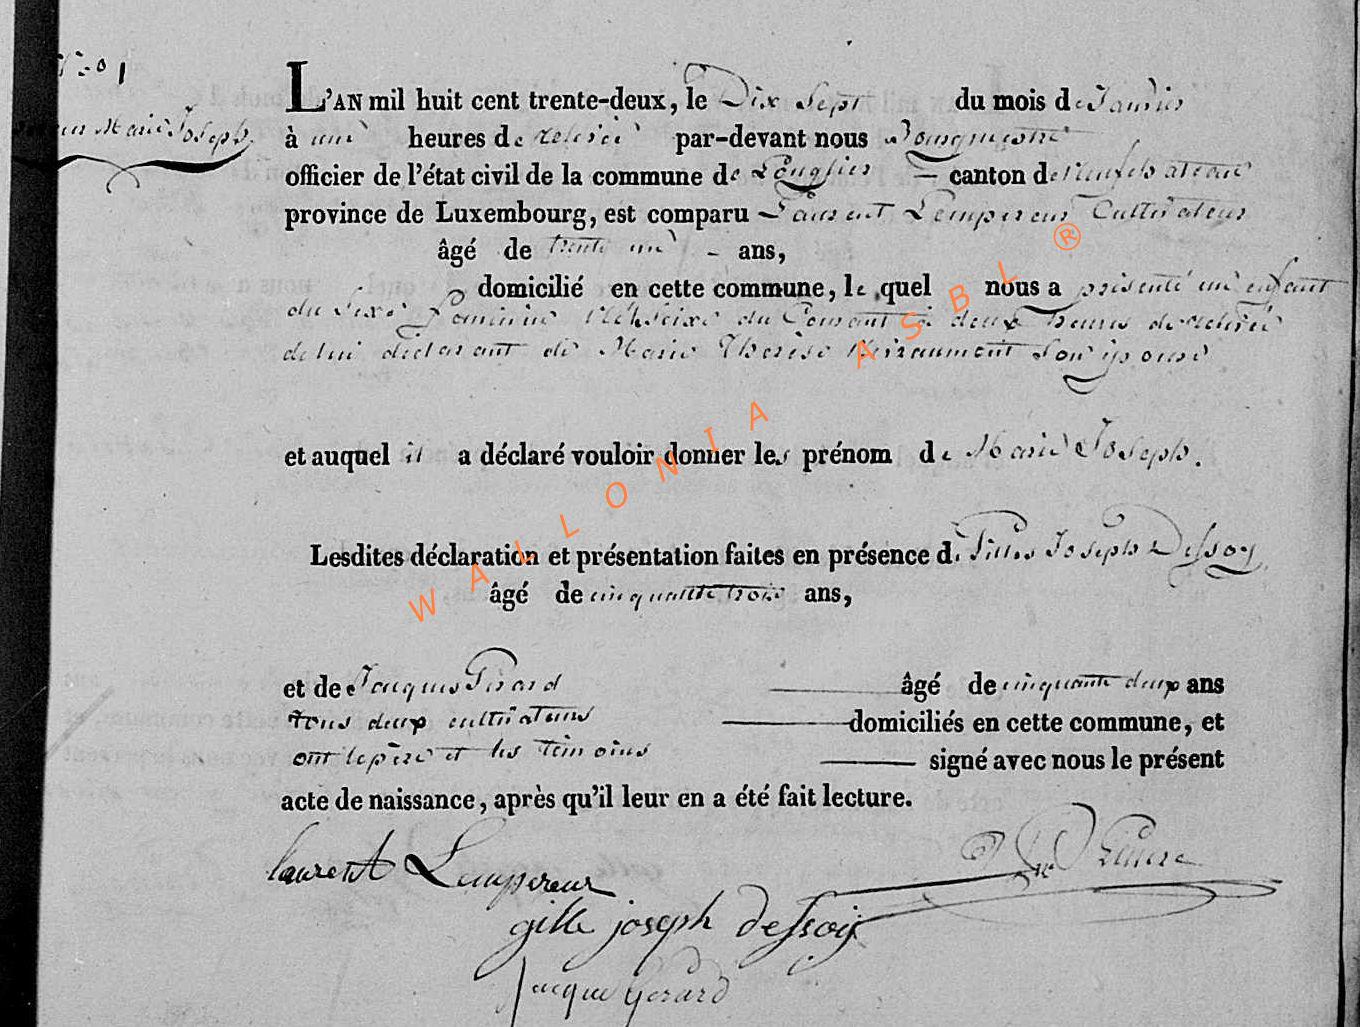 N° 1
Marie Joseph
L'AN mil huit cent trente-deux, le Dix Sept du mois de Janvier
à une heures de relevée par-devant nous Bourgmestre
officier de l'état civil de la commune de Longlier — canton de Neufchateau
province de Luxembourg, est comparu Laurent Lempereur Cultivateur
âgé de trente un - ans,
domicilié en cette commune, le quel nous a présenté un enfant
du sexe féminin née le seize du Courant à deux heures de relevée
de lui déclarant et de Marie Therese Son épouse
et auquel il a déclaré vouloir donner les prénom de Marie Joseph.
Lesdites déclaration et présentation faites en présence de Gilles Joseph Dessoy
âgé de cinquante trois ans,
et de Jacques Girard âgé de cinquante deux ans
tous deux cultivateurs domiciliés en cette commune, et
ont le père et les témoins signé avec nous le présent
acte de naissance, après qu'il leur en a été fait lecture.
laurent Lempereur
gille joseph dessoij
jacque Gerard
WALLONIA ASBL ®